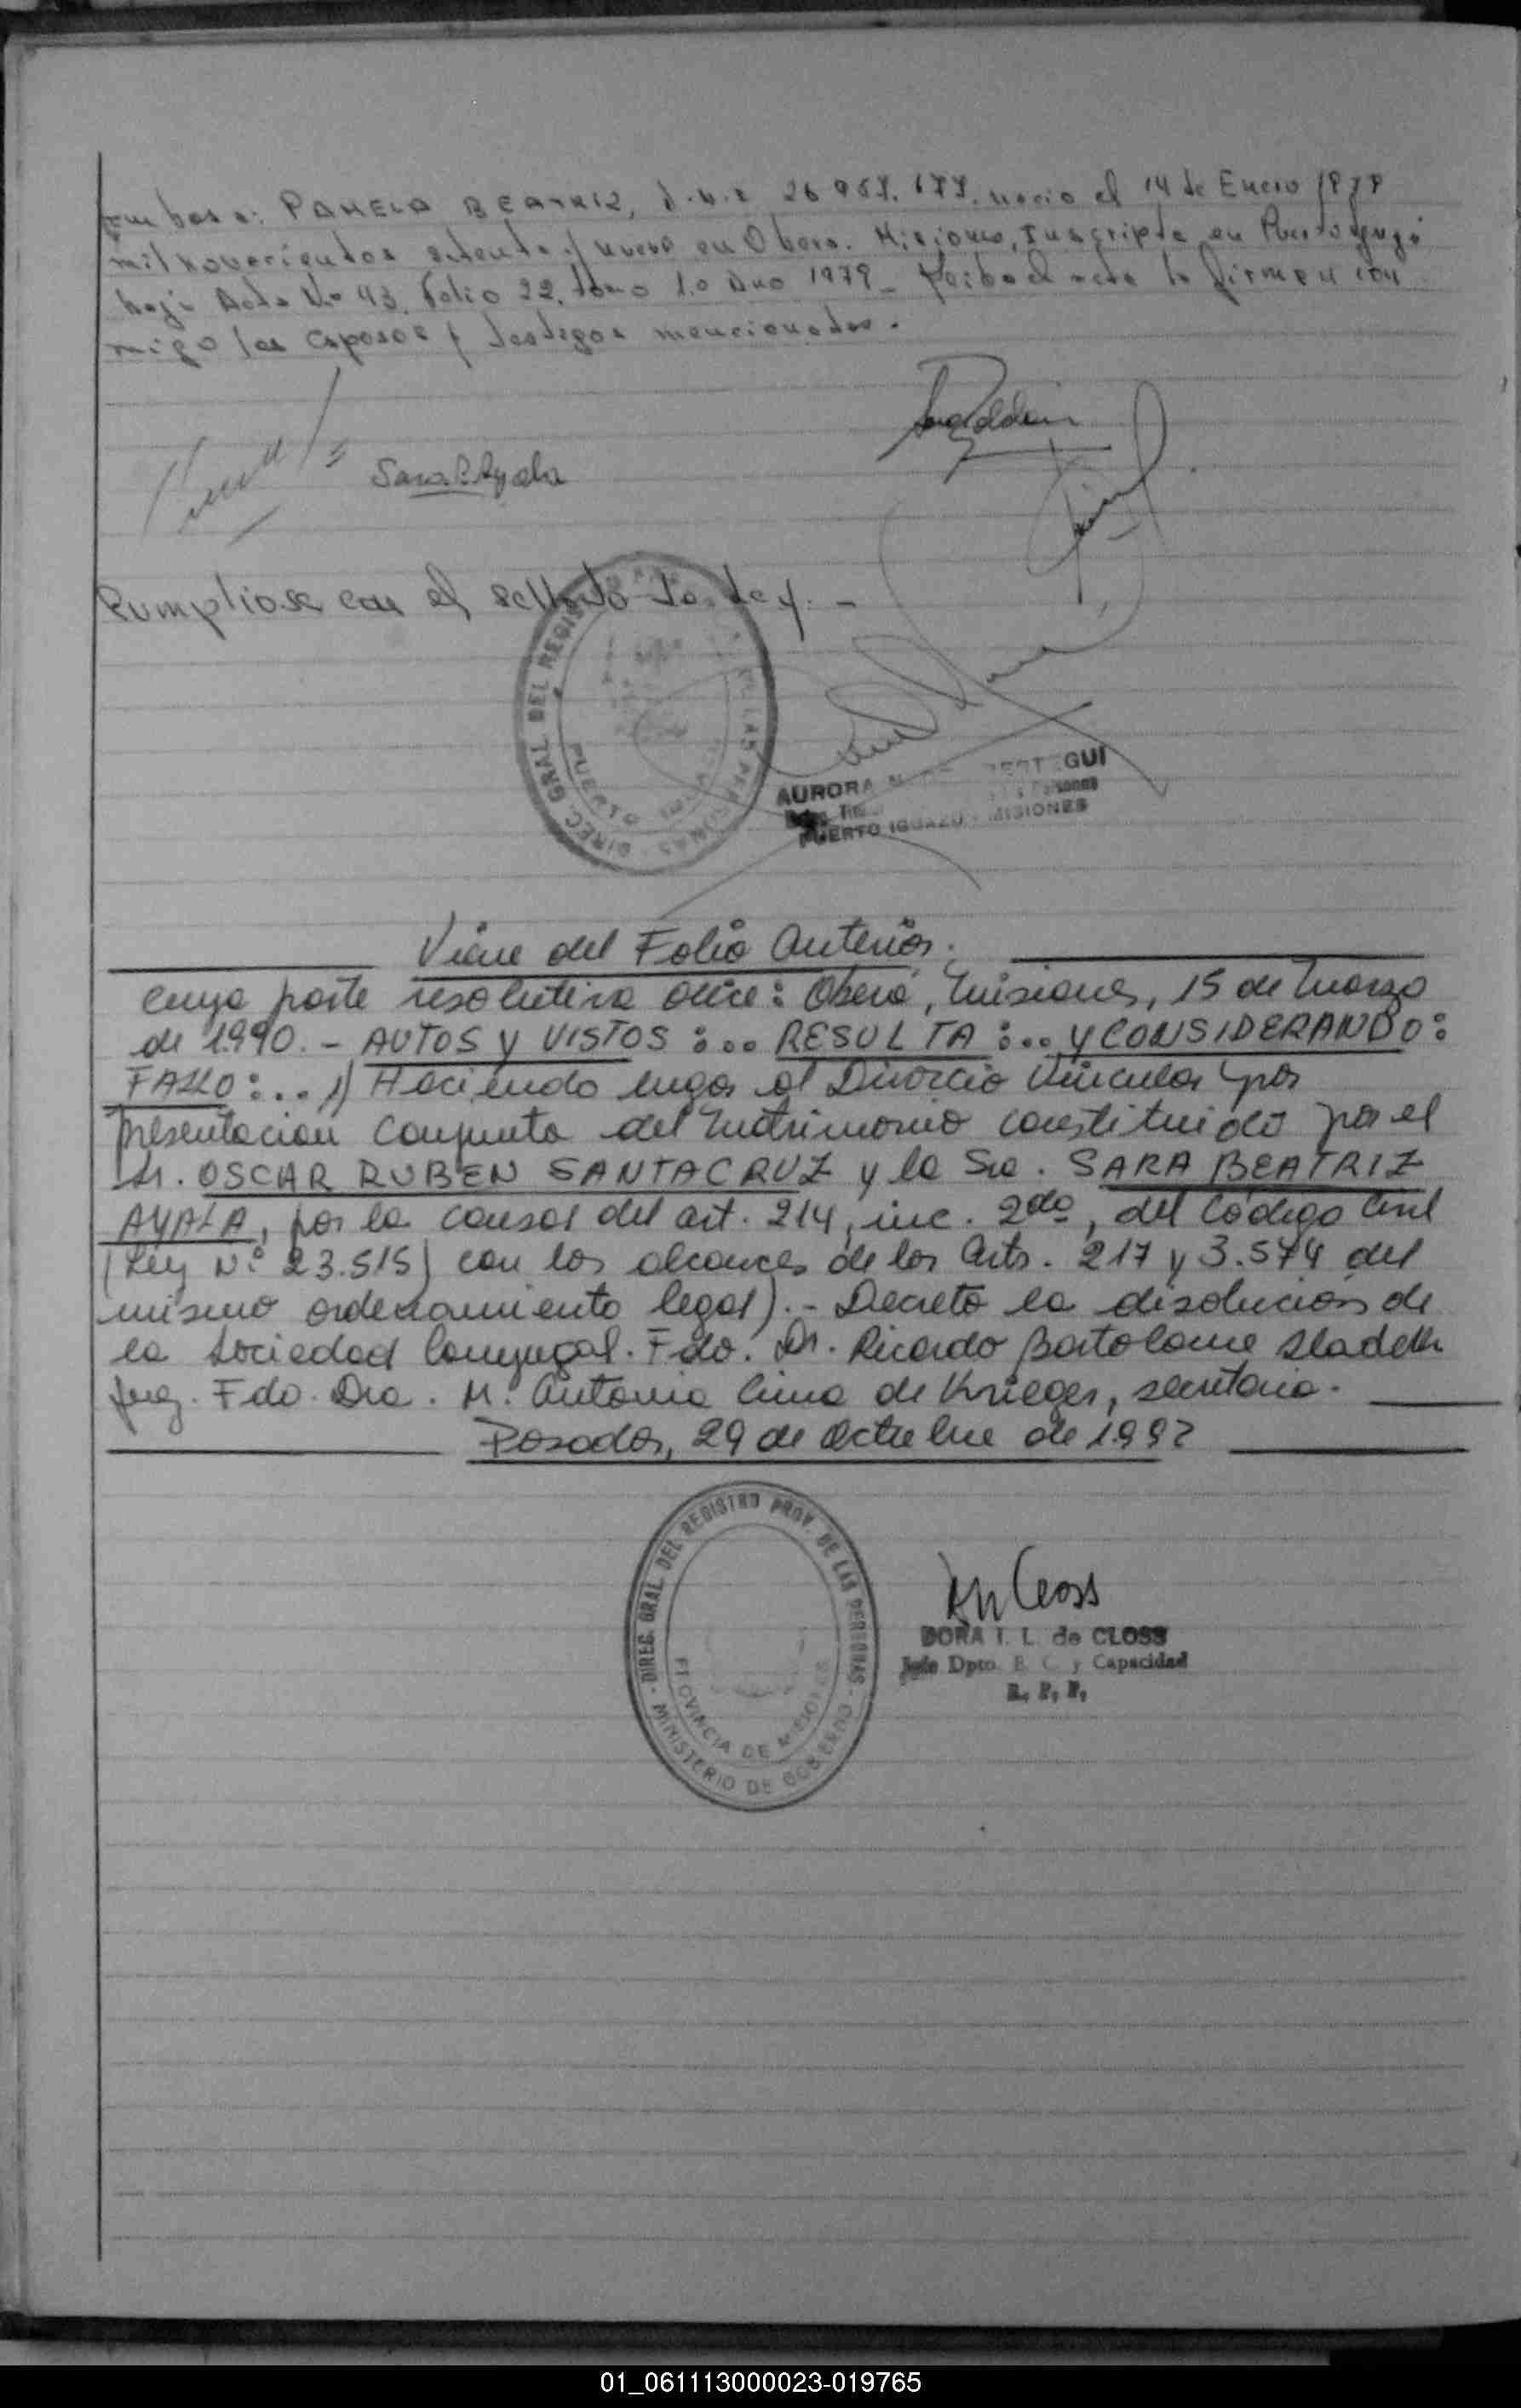 PAMELA BEATRIZ, nacio el 14 de Enero
milnovecientos setenta y nueve en Obera. Misiones, Inscripta en Puerto
bajo Acta No 43. Folio 22. tomo 1.o Año 1979_ el acta la firman con
migo los esposos y testigos mencionados.
Sara B. Ayala
Cumpliose con el sellado de Ley. -
DIREC. GRAL DEL REGIS LAS PERSONAS
PUERTO
AURORA GUI
PUERTO IGUAZU - MISIONES
Viene del Folio Anterior.
cuya parte resolutiva dice: Oberá, Misiones, 15 de Marzo
de 1.990. - AUTOS Y VISTOS :... RESULTA :... Y CONSIDERANDO:
FALLO:... 1) Haciendo lugar al Divorcio Vincular por
presentacion conjunta del Matrimonio constituido por el
Sr. OSCAR RUBEN SANTACRUZ y la Sra. SARA BEATRIZ
AYALA, por la causal del art. 214, inc. 2do, del Código Civil
(Ley N° 23.515) con los alcances de los Arts. 217 y 3.574 del
mismo ordenamiento legal). - Decreto la disolución de
la Sociedad Conyugal. Fdo. Dr. Ricardo Bartolome
Juez. Fdo. Dra. M. Antonia de Krieger, secretaria.
Posadas, 29 de Octubre de 1.992
DIREC. GRAL DEL REGISTRO PROV. DE LAS PERSONAS - MINISTERIO DE GOBIERNO
PROVINCIA DE MISIONES
DORA I. L. de CLOSS
Jefe Dpto. E. C. y Capacidad
R. P. P.
01_061113000023-019765